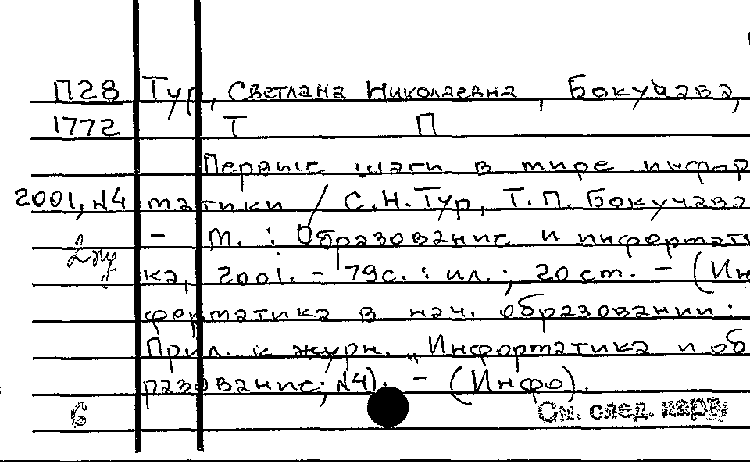 П28 Тур, Светлана Николаевна, Бокучава,
1772 Т П
Первые шаги в мире инфор
2001, №4 матики / С.Н. Тур, Т.П. Бокучава
- М. : Образование и информати
2 эку ка, 2001. - 79с. : ил. ; 20 cm. - (Ин
форматика в нач. образовании :
Прил. к журн. "Информатика и об
разование; №4). - (Инфо).
6 См. след. карту